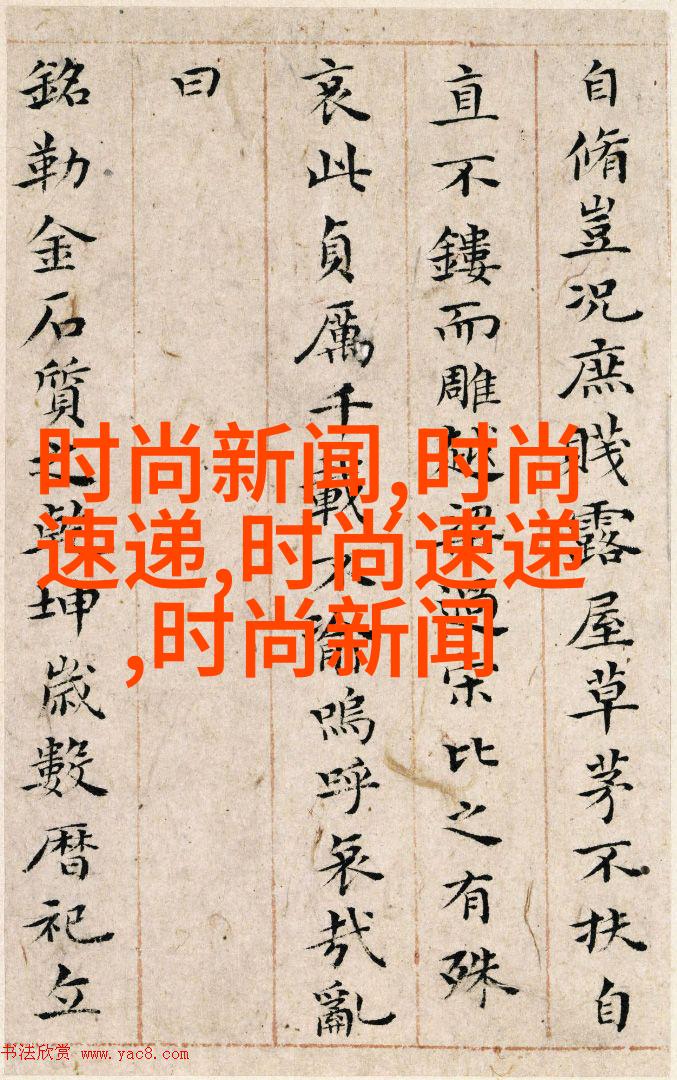 自脩豈況庶賤露屋草茅不扶自
直不鏤而雕越梁過宋比之有殊
哀此貞厲千載不渝嗚呼哀哉亂
曰
銘勒金石質之乾坤歲數暦祀立
时尚新闻,时尚
速递,时尚速递
,时尚新闻
书法欣赏 www.yac8.com